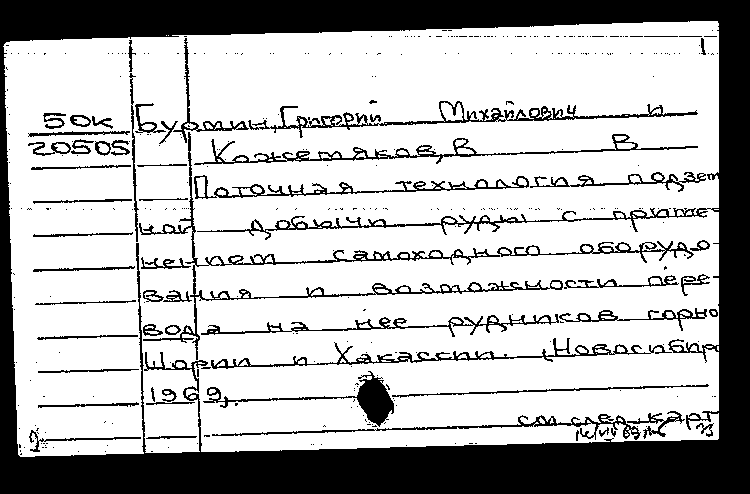 1
50К Бурмин, Григорий Михайлович и
20505 Кожемяков, В В
Поточная технология подзем
ной добычи руды с приме-
нением самоходного оборудо-
вания и возможности пере-
вода на нее рудников горно
Шории и Хакассии. (Новосибир
1969,.
см след. карт